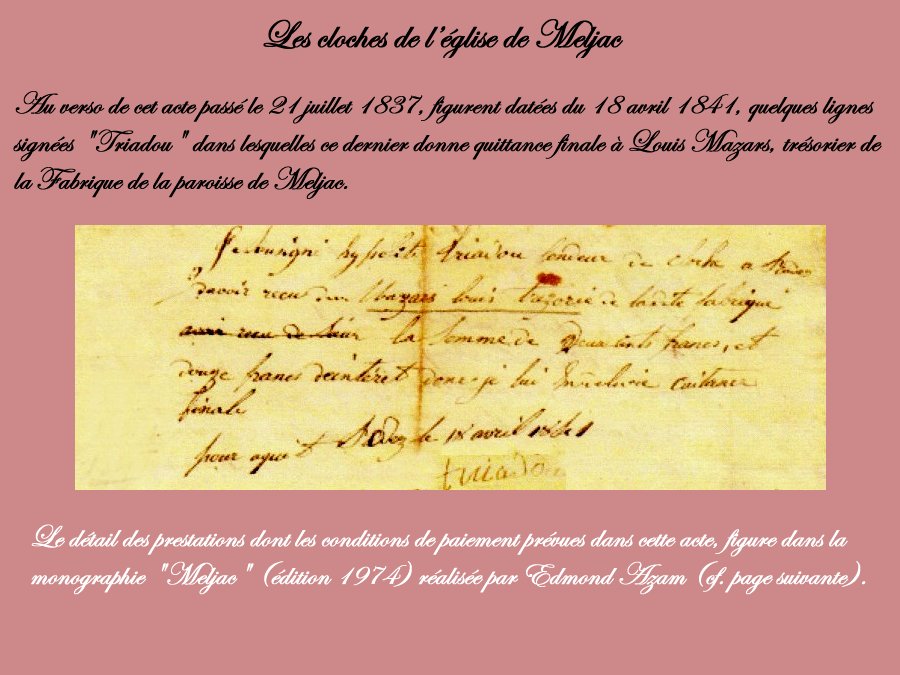 Les cloches de l'église de Meljac
Au verso de cet acte passé le 21 juillet 1837, figurent datées du 18 avril 1841, quelques lignes
signées "Triadou" dans lesquelles ce dernier donne quittance finale à Louis Mazars, trésorier de
la Fabrique de la paroisse de Meljac.
Triadou fondeur de cloche a Rodez
davoir recu Mazars louis trezorie de ladite fabrique
la somme de Deux cents francs, et
douze francs deinteret donc je lui
finale
pour aquit Rodez le 18 avril 1841
triadou
Le détail des prestations dont les conditions de paiement prévues dans cette acte, figure dans la
monographie "Meljac" (édition 1974) réalisée par Edmond Azam (cf. page suivante).